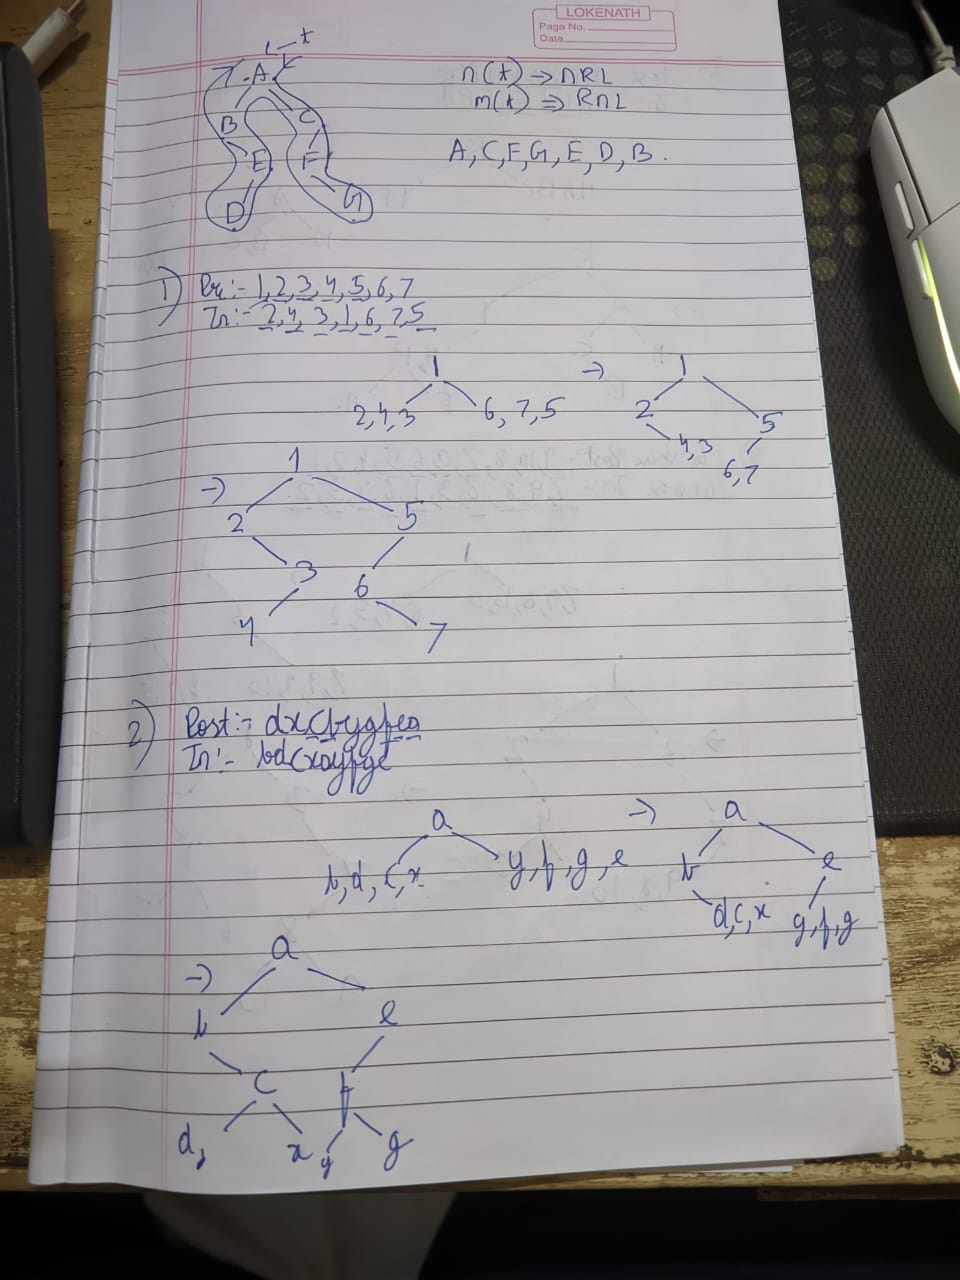 LOKENATH
Page No.
Date
t
A
B
C
E
F
D
G
n(t) → nRL
m(t) ⇒ RnL
A, C, F, G, E, D, B.
1) Pre:- 1, 2, 3, 4, 5, 6, 7
In:- 2, 4, 3, 1, 6, 7, 5
1
2, 4, 3
6, 7, 5
→ 1
2
5
4, 3
6, 7
→ 1
2
5
3
6
4
7
2) Post:- dxcbygfea
In:- bdcxayfge
a
b, d, c, x
y, f, g, e
→ a
b
e
d, c, x
y, f, g
→ a
b
e
c
f
d,
x
y
g